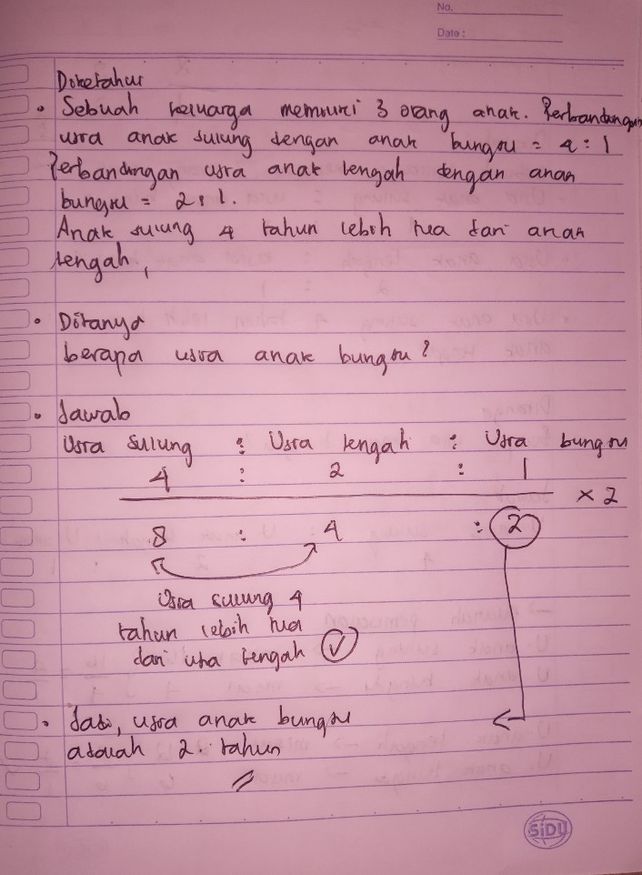 No.
Date :
Diketahui
• Sebuah keluarga memiliki 3 orang anak. Perbandingan
usia anak sulung dengan anak bungsu = 4 : 1
Perbandingan usia anak tengah dengan anak
bungsu = 2 : 1.
Anak sulung 4 tahun lebih tua dari anak
tengah,
• Ditanya
berapa usia anak bungsu?
• Jawab
Usia sulung : Usia tengah : Usia bungsu
4 : 2 : 1
× 2
8 : 4 : 2
Usia sulung 4
tahun lebih tua
dari usia tengah ✓
• Jadi, usia anak bungsu
adalah 2. tahun
SiDU